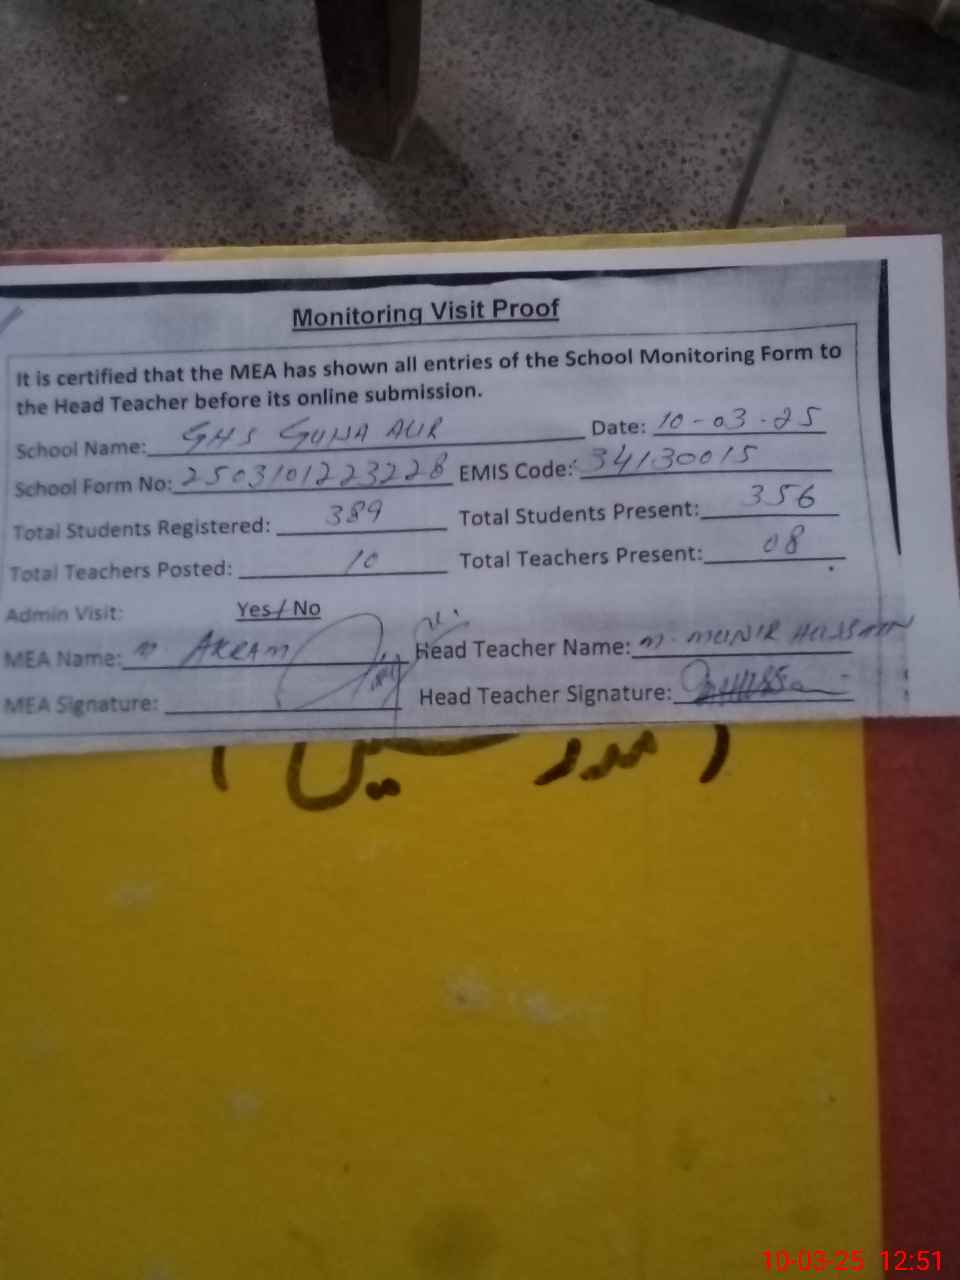 Monitoring Visit Proof
It is certified that the MEA has shown all entries of the School Monitoring Form to
the Head Teacher before its online submission.
School Name: GHS GUNA AUR Date: 10-03-25
School Form No: 2503101223228 EMIS Code: 34130015
Total Students Registered: 389 Total Students Present: 356
Total Teachers Posted: 10 Total Teachers Present: 08
Admin Visit: Yes / No
MEA Name: M AKRAM Head Teacher Name: M. MUNIR HUSSAIN
MEA Signature: Head Teacher Signature:
10-03-25 12:51